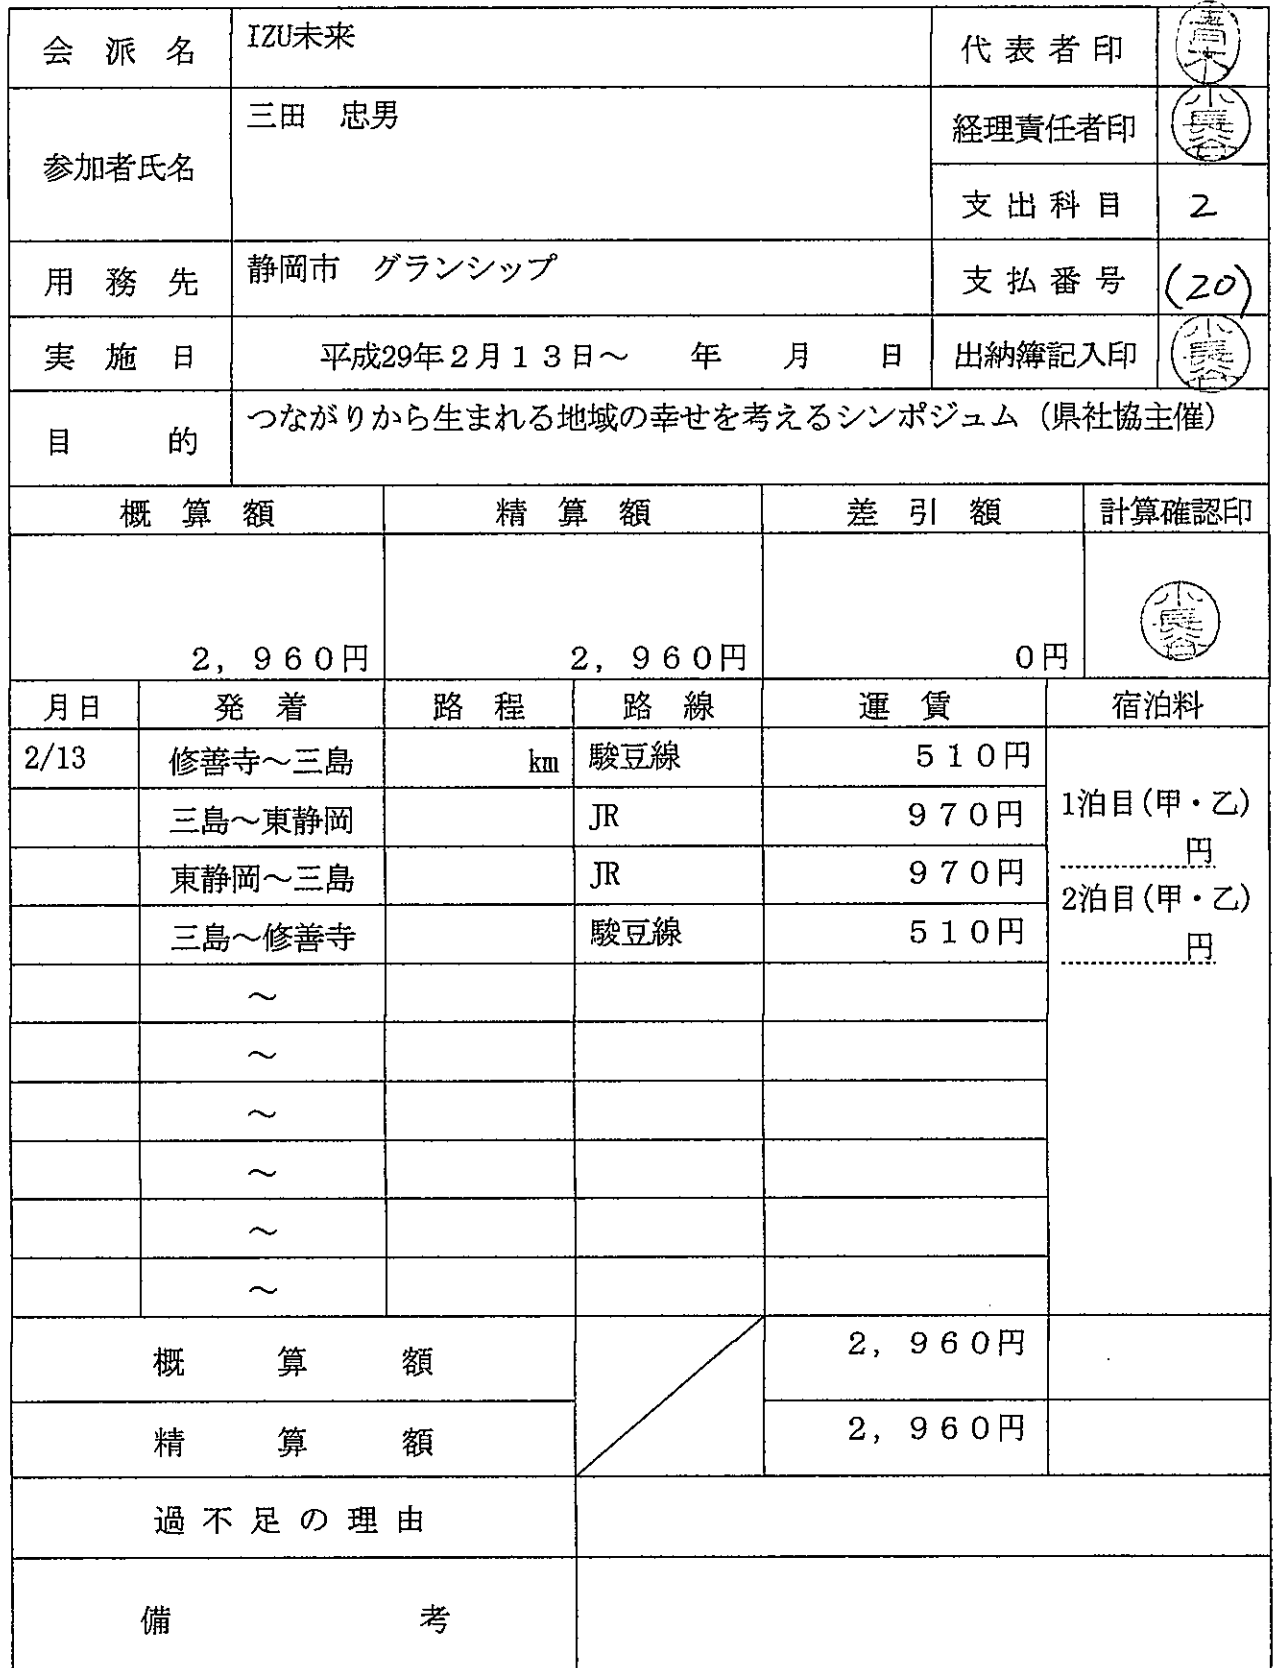 会派名 IZU未来 代表者印 青木
参加者氏名 三田 忠男 経理責任者印 小長谷
支出科目 2
用務先 静岡市 グランシップ 支払番号 (20)
実施日 平成29年2月13日～ 年 月 日 出納簿記入印 小長谷
目的 つながりから生まれる地域の幸せを考えるシンポジュム(県社協主催)
概算額 精算額 差引額 計算確認印
2,960円 2,960円 0円 小長谷
月日 発着 路程 路線 運賃 宿泊料
2/13 修善寺～三島 km 駿豆線 510円
三島～東静岡 JR 970円 1泊目(甲・乙)
円
東静岡～三島 JR 970円 2泊目(甲・乙)
三島～修善寺 駿豆線 510円 円
～
～
～
～
～
～
概算額 2,960円
精算額 2,960円
過不足の理由
備考